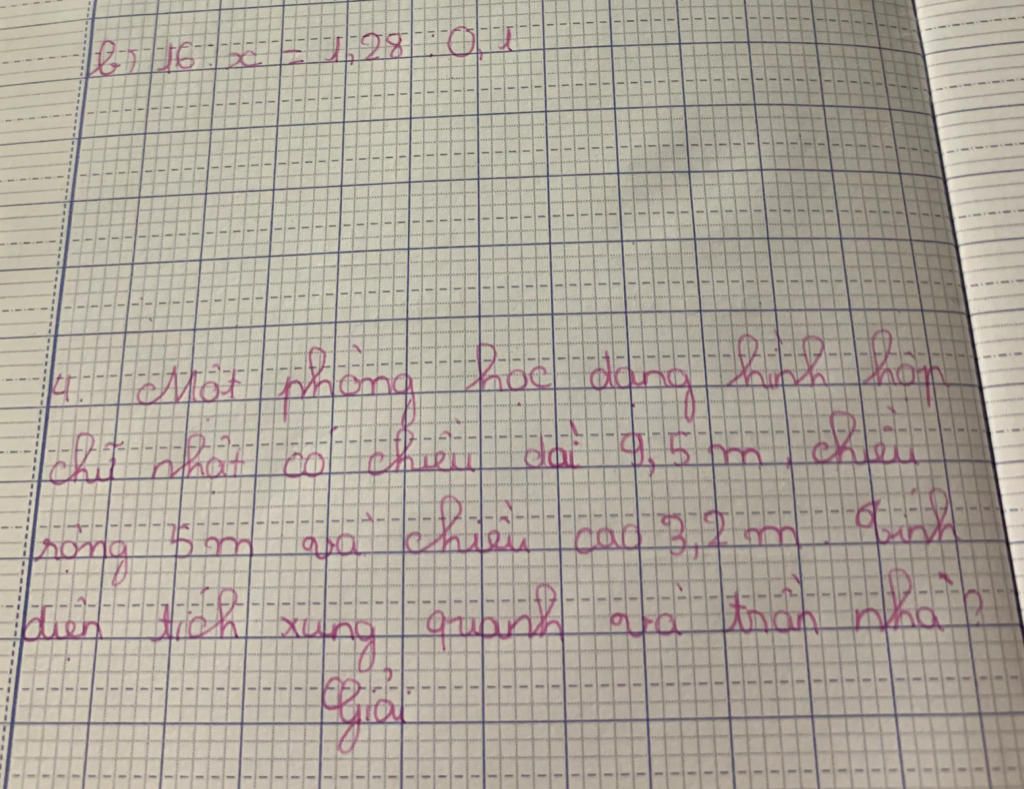 b) 16 . x = 1,28 : 0,1
4. Một phòng học dạng hình hộp
chữ nhật có chiều dài 9,5 m, chiều
rộng 5 m và chiều cao 3,2 m. Tính
diện tích xung quanh và trần nhà?
Giải